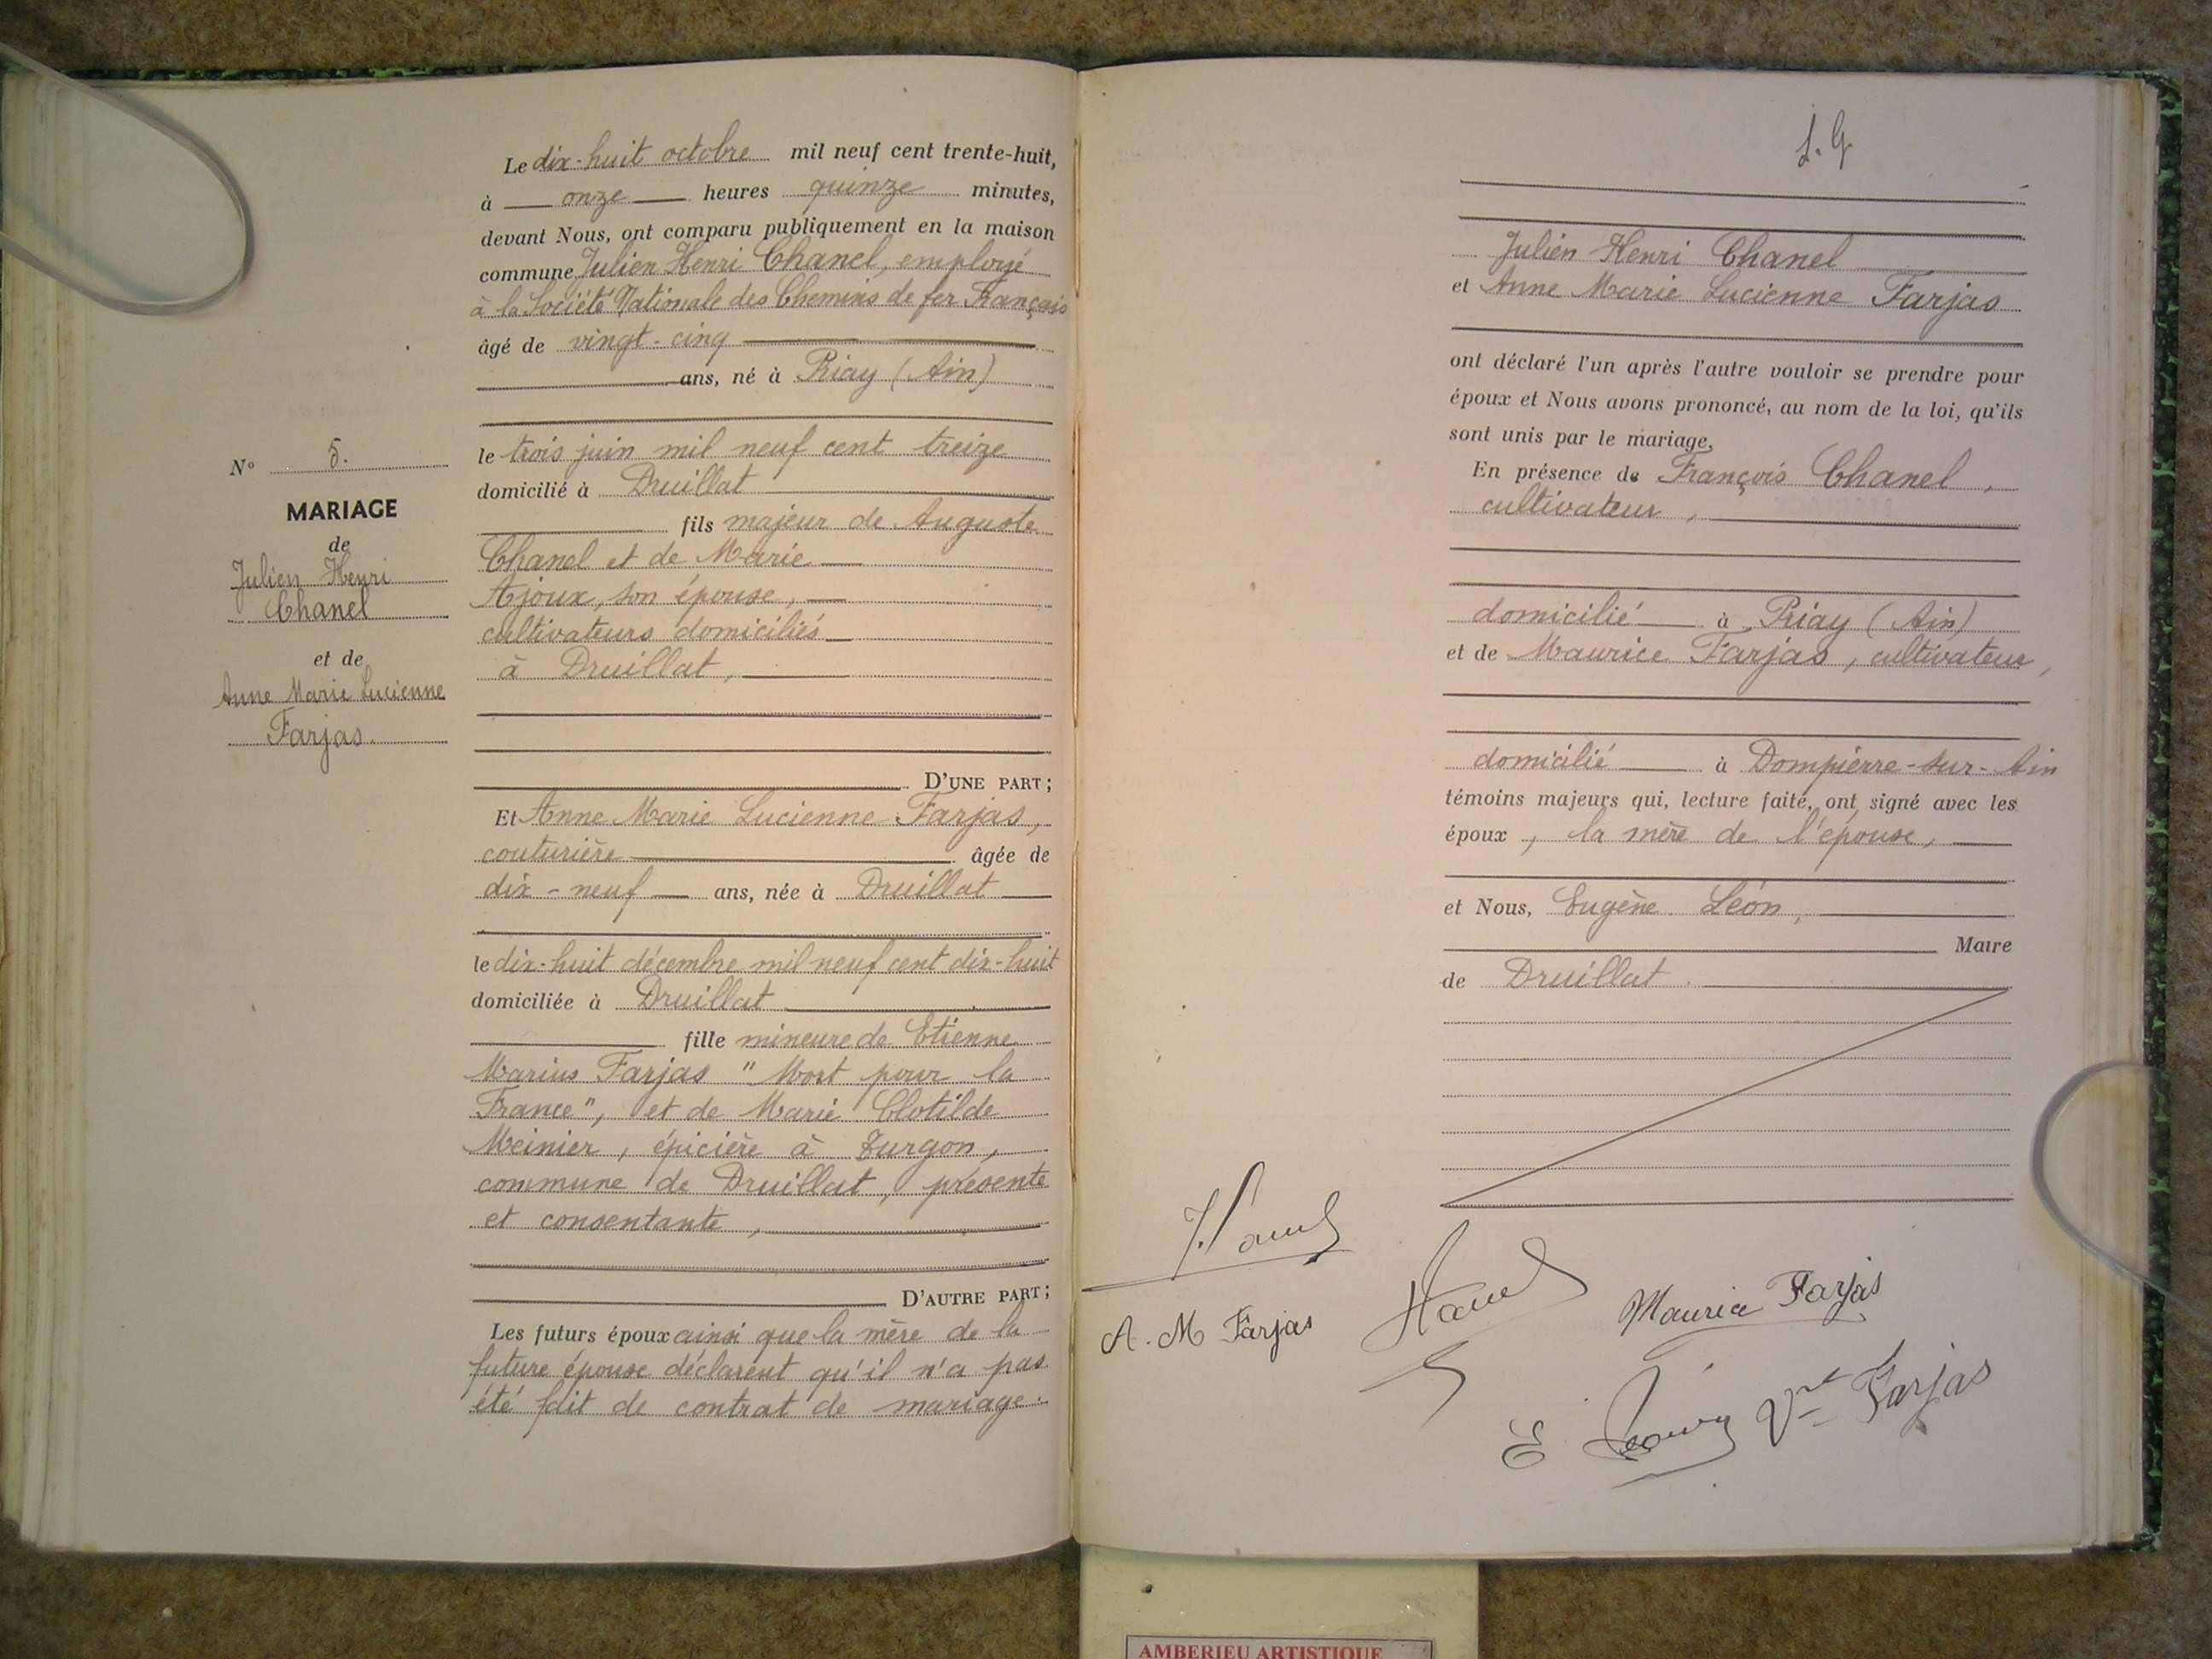 Le dix-huit octobre mil neuf cent trente-huit,
à onze heures quinze minutes,
devant Nous, ont comparu publiquement en la maison
commune Julien Henri Chanel, employé
à la Société Nationale des Chemins de fer Français
âgé de vingt-cinq
ans, né à Priay (Ain)
le trois juin mil neuf cent treize
domicilié à Druillat
fils majeur de Auguste
Chanel et de Marie
Ajoux, son épouse,
cultivateurs domiciliés
à Druillat,
D'UNE PART;
Et Anne Marie Lucienne Farjas,
couturière âgée de
dix-neuf ans, née à Druillat
le dix-huit décembre mil neuf cent dix-huit
domiciliée à Druillat
fille mineure de Etienne
Marius Farjas "Mort pour la
France", et de Marie Clotilde
Meinier, épicière à Turgon,
commune de Druillat, présente
et consentante,
D'AUTRE PART;
Les futurs époux ainsi que la mère de la
future épouse déclarent qu'il n'a pas
été fait de contrat de mariage.
N° 5.
MARIAGE
de
Julien Henri
Chanel
et de
Anne Marie Lucienne
Farjas.
Julien Henri Chanel
et Anne Marie Lucienne Farjas
ont déclaré l'un après l'autre vouloir se prendre pour
époux et Nous avons prononcé, au nom de la loi, qu'ils
sont unis par le mariage,
En présence de François Chanel,
cultivateur,
domicilié à Priay (Ain)
et de Maurice Farjas, cultivateur,
domicilié à Dompierre-sur-Ain
témoins majeurs qui, lecture faite, ont signé avec les
époux, la mère de l'épouse,
et Nous, Eugène Léon,
Maire
de Druillat.
A. M Farjas
Maurice Farjas
Vve Farjas
AMBERIEU ARTISTIQUE